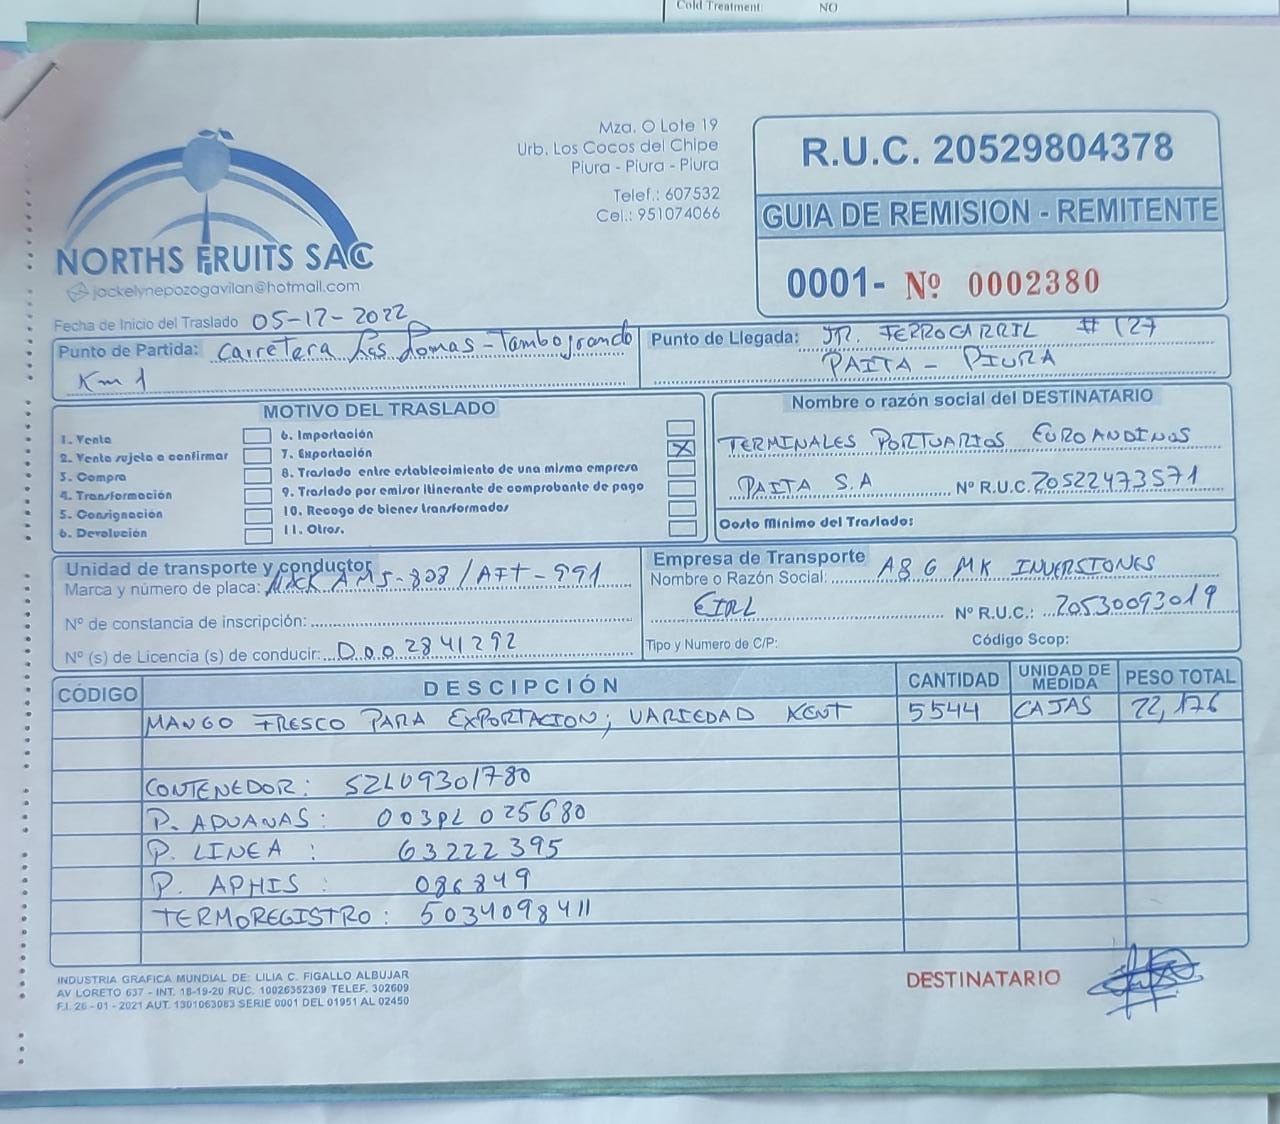 Cold Treatment: NO
Mza. O Lote 19
Urb. Los Cocos del Chipe
Piura - Piura - Piura
Telef.: 607532
Cel.: 951074066
NORTHS FRUITS SAC
jackelynepozogavilan@hotmail.com
R.U.C. 20529804378
GUIA DE REMISION - REMITENTE
0001- Nº 0002380
Fecha de Inicio del Traslado 05-12-2022
Punto de Partida: Carretera Las Lomas - Tambogrande
Km 1
Punto de Llegada: JR. FERROCARRIL # 127
PAITA - PIURA
MOTIVO DEL TRASLADO
1. Venta
2. Venta sujeta a confirmar
3. Compra
4. Transformación
5. Consignación
6. Devolución
6. Importación
7. Exportación X
8. Traslado entre establecimiento de una misma empresa
9. Traslado por emisor itinerante de comprobante de pago
10. Recogo de bienes transformados
11. Otros.
Nombre o razón social del DESTINATARIO
TERMINALES PORTUARIOS EUROANDINOS
PAITA S.A Nº R.U.C. 20522473571
Costo Mínimo del Traslado:
Unidad de transporte y conductor
Marca y número de placa: MACK AMJ-808 / AFT-991
Nº de constancia de inscripción:
Nº (s) de Licencia (s) de conducir: D002841292
Empresa de Transporte
Nombre o Razón Social: A&G MK INVERSIONES
EIRL Nº R.U.C.: 20530093019
Tipo y Numero de C/P: Código Scop:
CÓDIGO DESCIPCIÓN CANTIDAD UNIDAD DE MEDIDA PESO TOTAL
MANGO FRESCO PARA EXPORTACION; VARIEDAD KENT 5544 CAJAS 22,176
CONTENEDOR: SZLU9301780
P. ADUANAS: 003PL025680
P. LINEA : 63222395
P. APHIS : 086849
TERMOREGISTRO: 5034098411
INDUSTRIA GRAFICA MUNDIAL DE: LILIA C. FIGALLO ALBUJAR
AV LORETO 637 - INT. 18-19-20 RUC. 10026352369 TELEF. 302609
F.I. 26 - 01 - 2021 AUT. 1301063083 SERIE 0001 DEL 01951 AL 02450
DESTINATARIO